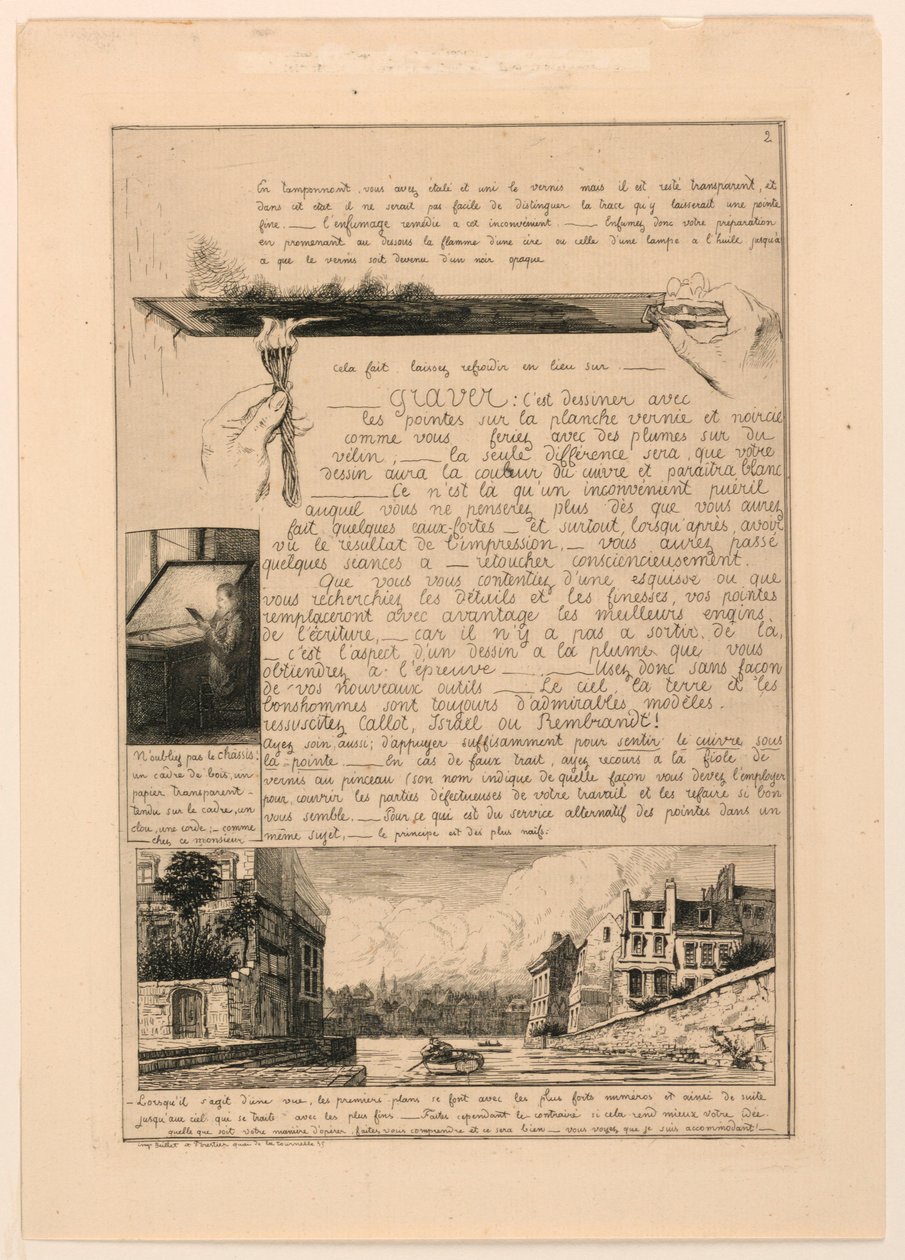 2
En tamponnant, vous avez étalé et uni le vernis mais il est resté transparent, et
dans cet état il ne serait pas facile de distinguer la trace qu'y laisserait une pointe
fine. — l'enfumage remédie a cet inconvénient. — Enfumez donc votre préparation
en promenant au dessous la flamme d'une cire ou celle d'une lampe a l'huile jusqu'à
a que le vernis soit devenu d'un noir opaque
cela fait laissez refroidir en lieu sur —
— graver : C'est dessiner avec
les pointes sur la planche vernie et noircie
comme vous feriez avec des plumes sur du
vélin, — la seule différence sera, que votre
dessin aura la couleur du cuivre et paraitra blanc
— Ce n'est là qu'un inconvénient puéril
auquel vous ne penserez plus dès que vous aurez
fait quelques eaux-fortes — et surtout, lorsqu'après avoir
vu le résultat de l'impression, — vous aurez passé
quelques séances a — retoucher consciencieusement.
Que vous vous contentiez d'une esquisse ou que
vous recherchiez les détails et les finesses, vos pointes
remplaceront avec avantage les meilleurs engins
de l'écriture, — car il n'y a pas a sortir de là,
— c'est l'aspect d'un dessin a la plume que vous
obtiendrez a l'épreuve — Usez donc sans façon
de vos nouveaux outils — Le ciel, la terre et les
bonshommes sont toujours d'admirables modèles.
ressuscitez Callot, Israël ou Rembrandt!
Ayez soin, aussi; d'appuyer suffisamment pour sentir le cuivre sous
la pointe. — En cas de faux trait, ayez recours à la fiole de
vernis au pinceau (son nom indique de quelle façon vous devez l'employer
pour couvrir les parties défectueuses de votre travail et les refaire si bon
vous semble. — Pour ce qui est du service alternatif des pointes dans un
même sujet, — le principe est des plus naïfs:
N'oubliez pas le châssis:
un cadre de bois, un
papier transparent —
tendu sur le cadre, un
clou, une corde; — comme
— chez ce monsieur —
— Lorsqu'il s'agit d'une vue, les premiers plans se font avec les plus forts numeros et ainsi de suite
jusqu'au ciel qui se traite avec les plus fins — Faites cependant le contraire si cela rend mieux votre idée.
quelle que soit votre manière d'opérer, faites vous comprendre et ce sera bien — vous voyez que je suis accommodant! —
imp Beillet et Forestier quai de la tournelle 35